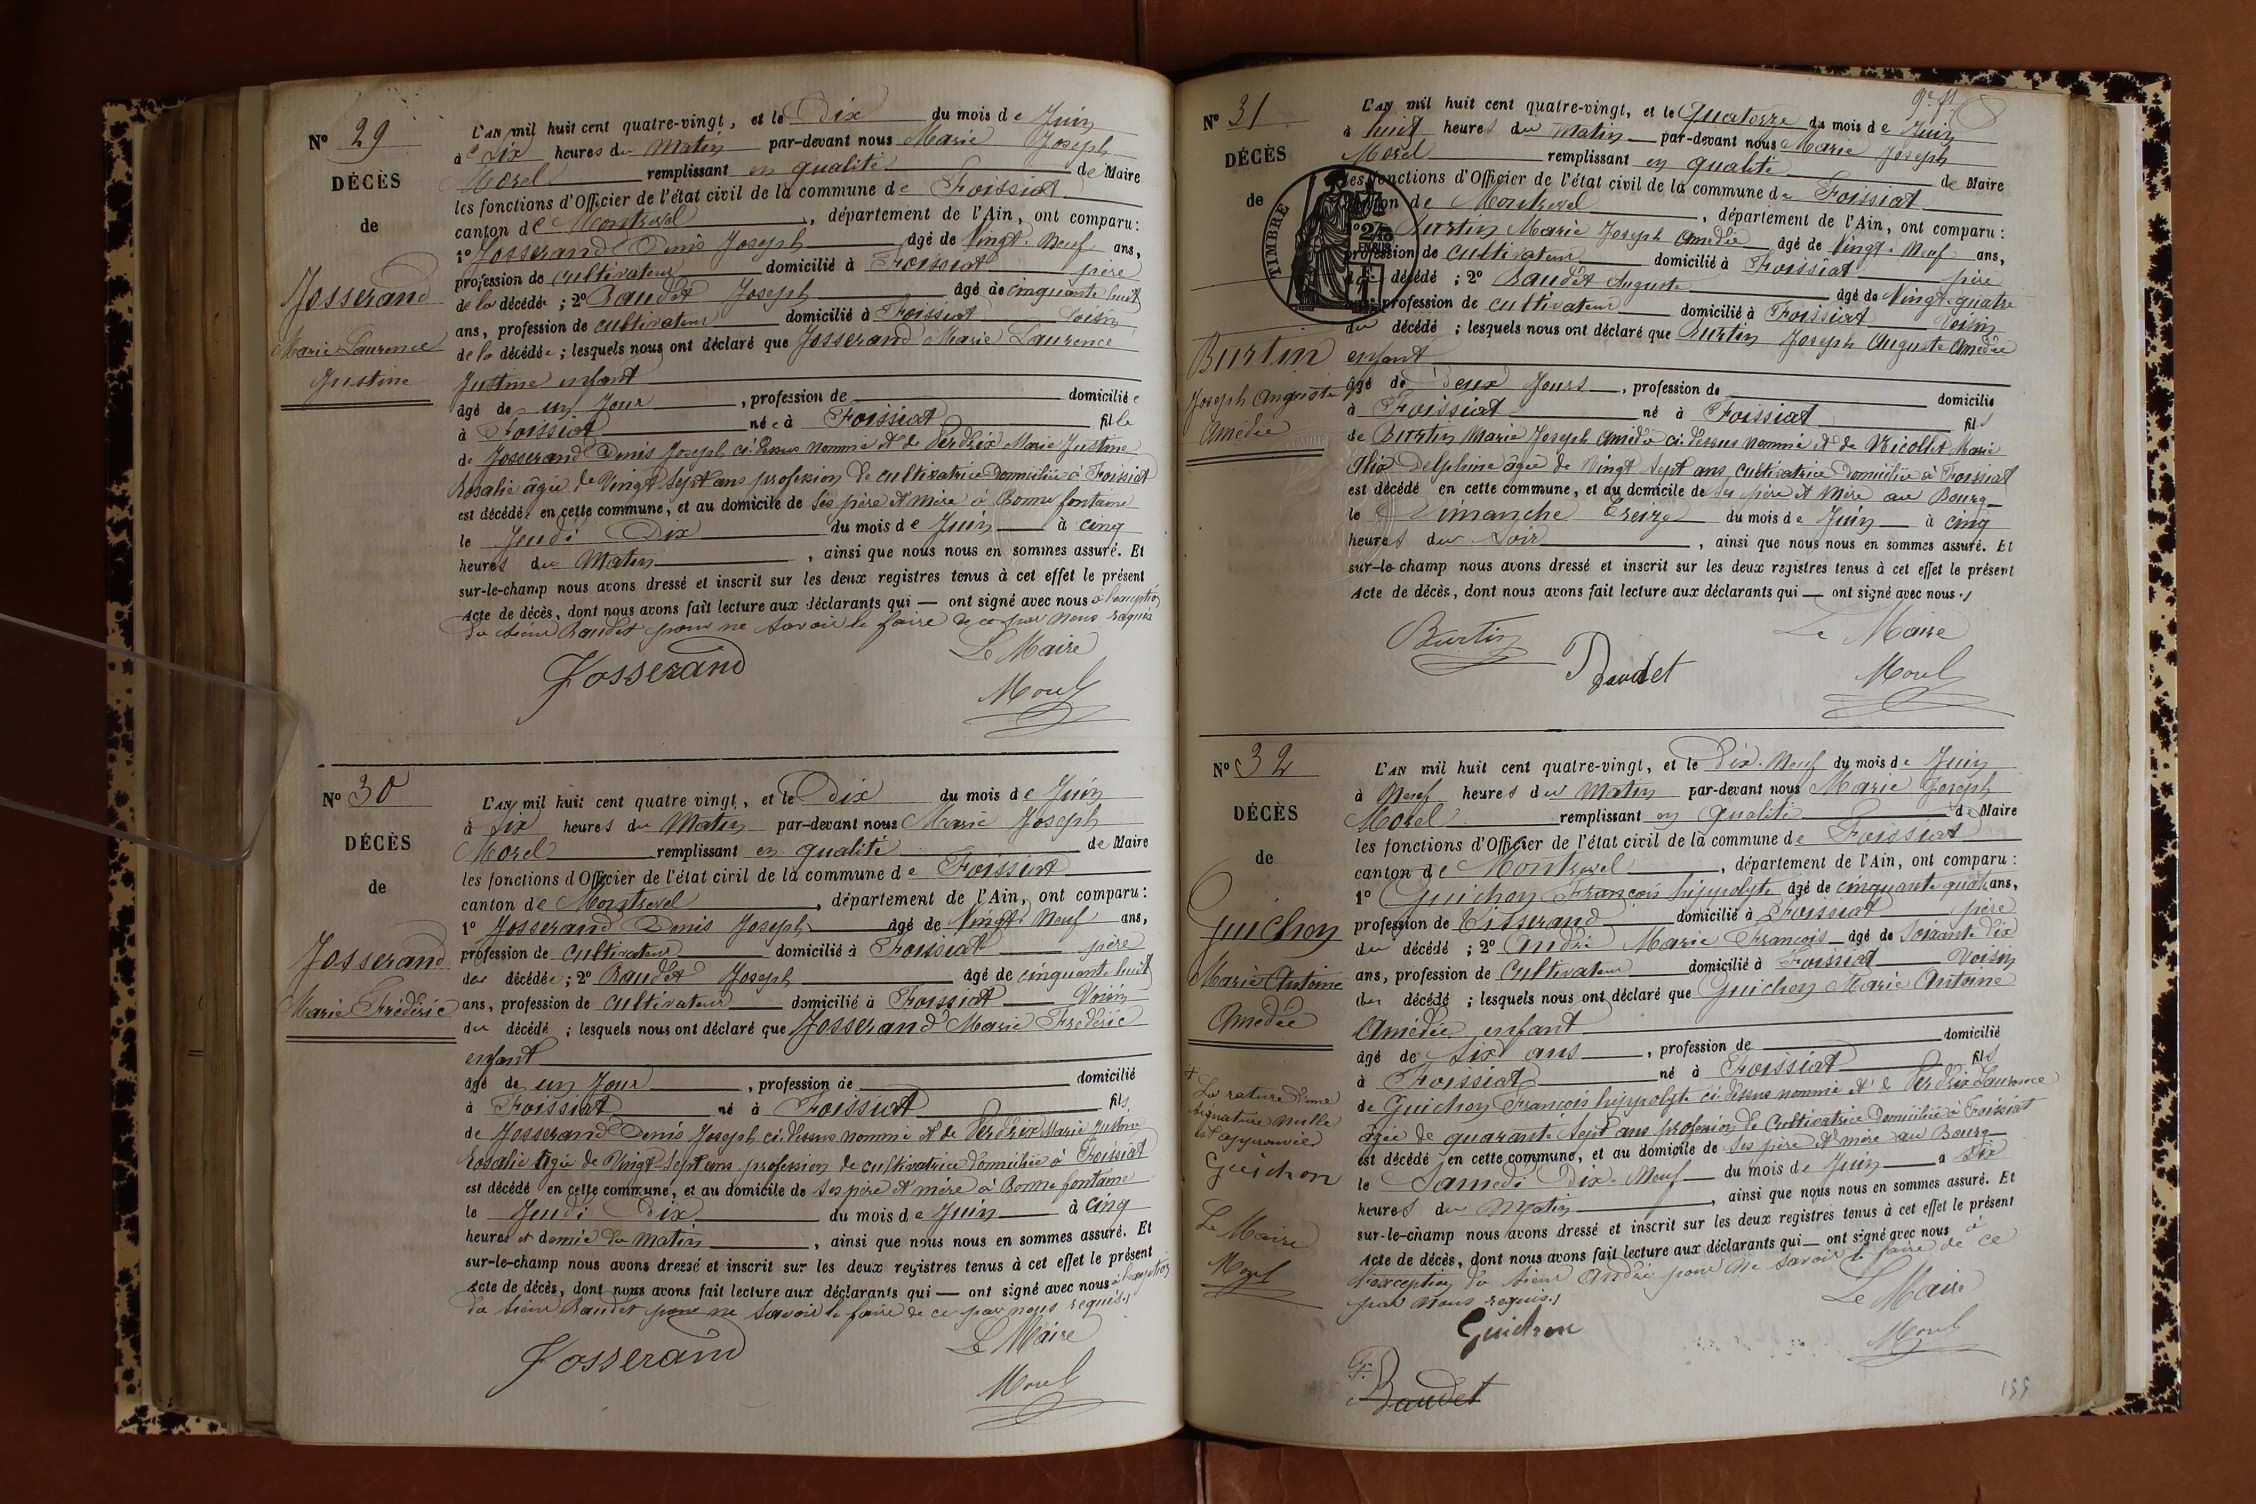 Nº 29
DÉCÈS
de
Josserand
Marie Laurence
Justine
L'an mil huit cent quatre-vingt, et le Dix du mois de Juin
à Dix heures du Matin par-devant nous Marie Joseph
Morel remplissant en qualité de Maire
les fonctions d'Officier de l'état civil de la commune de Foissiat
canton de Montrevel, département de l'Ain, ont comparu:
1º Josserand Denis Joseph âgé de Vingt-Neuf ans,
profession de cultivateur domicilié à Foissiat père
de la décédée; 2º Baudet Joseph âgé de cinquante huit
ans, profession de cultivateur domicilié à Foissiat Voisin
de la décédée; lesquels nous ont déclaré que Josserand Marie Laurence
Justine enfant
âgé de un Jour, profession de domiciliée
à Foissiat née à Foissiat fille
de Josserand Denis Joseph ci-dessus nommé et de Perdrix Marie Justine
Rosalie âgée de Vingt Sept ans profession de cultivatrice Domiciliée à Foissiat
est décédée en cette commune, et au domicile de Ses père et mère à Bonne fontaine
le Jeudi Dix du mois de Juin à cinq
heures du Matin, ainsi que nous nous en sommes assuré. Et
sur-le-champ nous avons dressé et inscrit sur les deux registres tenus à cet effet le présent
acte de décès, dont nous avons fait lecture aux déclarants qui — ont signé avec nous à l'exception
du sieur Baudet pour ne savoir le faire de ce par nous requis
Le Maire
Josserand
Morel
Nº 30
DÉCÈS
de
Josserand
Marie Frédéric
L'an mil huit cent quatre vingt, et le Dix du mois de Juin
à Dix heures du Matin par-devant nous Marie Joseph
Morel remplissant en qualité de Maire
les fonctions d'Officier de l'état civil de la commune de Foissiat
canton de Montrevel, département de l'Ain, ont comparu:
1º Josserand Denis Joseph âgé de Vingt-Neuf ans,
profession de cultivateur domicilié à Foissiat père
du décédé; 2º Baudet Joseph âgé de cinquante huit
ans, profession de cultivateur domicilié à Foissiat Voisin
du décédé; lesquels nous ont déclaré que Josserand Marie Frédéric
enfant
âgé de un Jour, profession de domicilié
à Foissiat né à Foissiat fils
de Josserand Denis Joseph ci-dessus nommé et de Perdrix Marie Justine
Rosalie âgée de Vingt Sept ans profession de cultivatrice domiciliée à Foissiat
est décédé en cette commune, et au domicile de Ses père et mère à Bonne fontaine
le Jeudi Dix du mois de Juin à cinq
heures et demie du matin, ainsi que nous nous en sommes assuré. Et
sur-le-champ nous avons dressé et inscrit sur les deux registres tenus à cet effet le présent
acte de décès, dont nous avons fait lecture aux déclarants qui — ont signé avec nous à l'exception
du sieur Baudet pour ne savoir le faire de ce par nous requis
Le Maire
Josserand
Morel
Nº 31
DÉCÈS
de
TIMBRE
Burtin
Joseph Auguste
Amédée
L'an mil huit cent quatre-vingt, et le Quatorze du mois de Juin
à huit heures du Matin par-devant nous Marie Joseph
Morel remplissant en qualité de Maire
les fonctions d'Officier de l'état civil de la commune de Foissiat
canton de Montrevel, département de l'Ain, ont comparu:
Burtin Marie Joseph Amédée âgé de Vingt-Neuf ans,
profession de cultivateur domicilié à Foissiat père
du décédé; 2º Baudet Auguste âgé de Vingt-quatre
ans, profession de cultivateur domicilié à Foissiat Voisin
du décédé; lesquels nous ont déclaré que Burtin Joseph Auguste Amédée
enfant
âgé de Deux Jours, profession de domicilié
à Foissiat né à Foissiat fils
de Burtin Marie Joseph Amédée ci-dessus nommé et de Nicollet Marie
Alix Delphine âgée de Vingt Sept ans Cultivatrice Domiciliée à Foissiat
est décédé en cette commune, et au domicile de Ses père et mère au Bourg
le Dimanche Treize du mois de Juin à cinq
heures du Soir, ainsi que nous nous en sommes assuré. Et
sur-le-champ nous avons dressé et inscrit sur les deux registres tenus à cet effet le présent
acte de décès, dont nous avons fait lecture aux déclarants qui — ont signé avec nous
Le Maire
Burtin
Baudet
Morel
Nº 32
DÉCÈS
de
Guichon
Marie Antoine
Amédée
La rature d'une
signature nulle
est approuvée
Guichon
Le Maire
Morel
L'an mil huit cent quatre-vingt, et le Dix-Neuf du mois de Juin
à Neuf heures du Matin par-devant nous Marie Joseph
Morel remplissant en qualité de Maire
les fonctions d'Officier de l'état civil de la commune de Foissiat
canton de Montrevel, département de l'Ain, ont comparu:
1º Guichon François hippolyte âgé de cinquante quatre ans,
profession de Tisserand domicilié à Foissiat père
du décédé; 2º André Marie François âgé de Soixante Dix
ans, profession de Cultivateur domicilié à Foissiat Voisin
du décédé; lesquels nous ont déclaré que Guichon Marie Antoine
Amédée enfant
âgé de Six ans, profession de domicilié
à Foissiat né à Foissiat fils
de Guichon François hippolyte ci-dessus nommé et de Perdrix Laurence
âgée de quarante Sept ans profession de Cultivatrice Domiciliée à Foissiat
est décédé en cette commune, et au domicile de Ses père et mère au Bourg
le Samedi Dix-Neuf du mois de Juin à Six
heures du Matin, ainsi que nous nous en sommes assuré. Et
sur-le-champ nous avons dressé et inscrit sur les deux registres tenus à cet effet le présent
acte de décès, dont nous avons fait lecture aux déclarants qui — ont signé avec nous à
l'exception du sieur André pour ne savoir le faire de ce
par nous requis
Le Maire
Guichon
Morel
Baudet